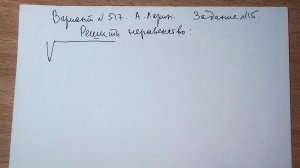 Вариант № 517. А. Ларин. Задание №15.
Решить неравенство:
√